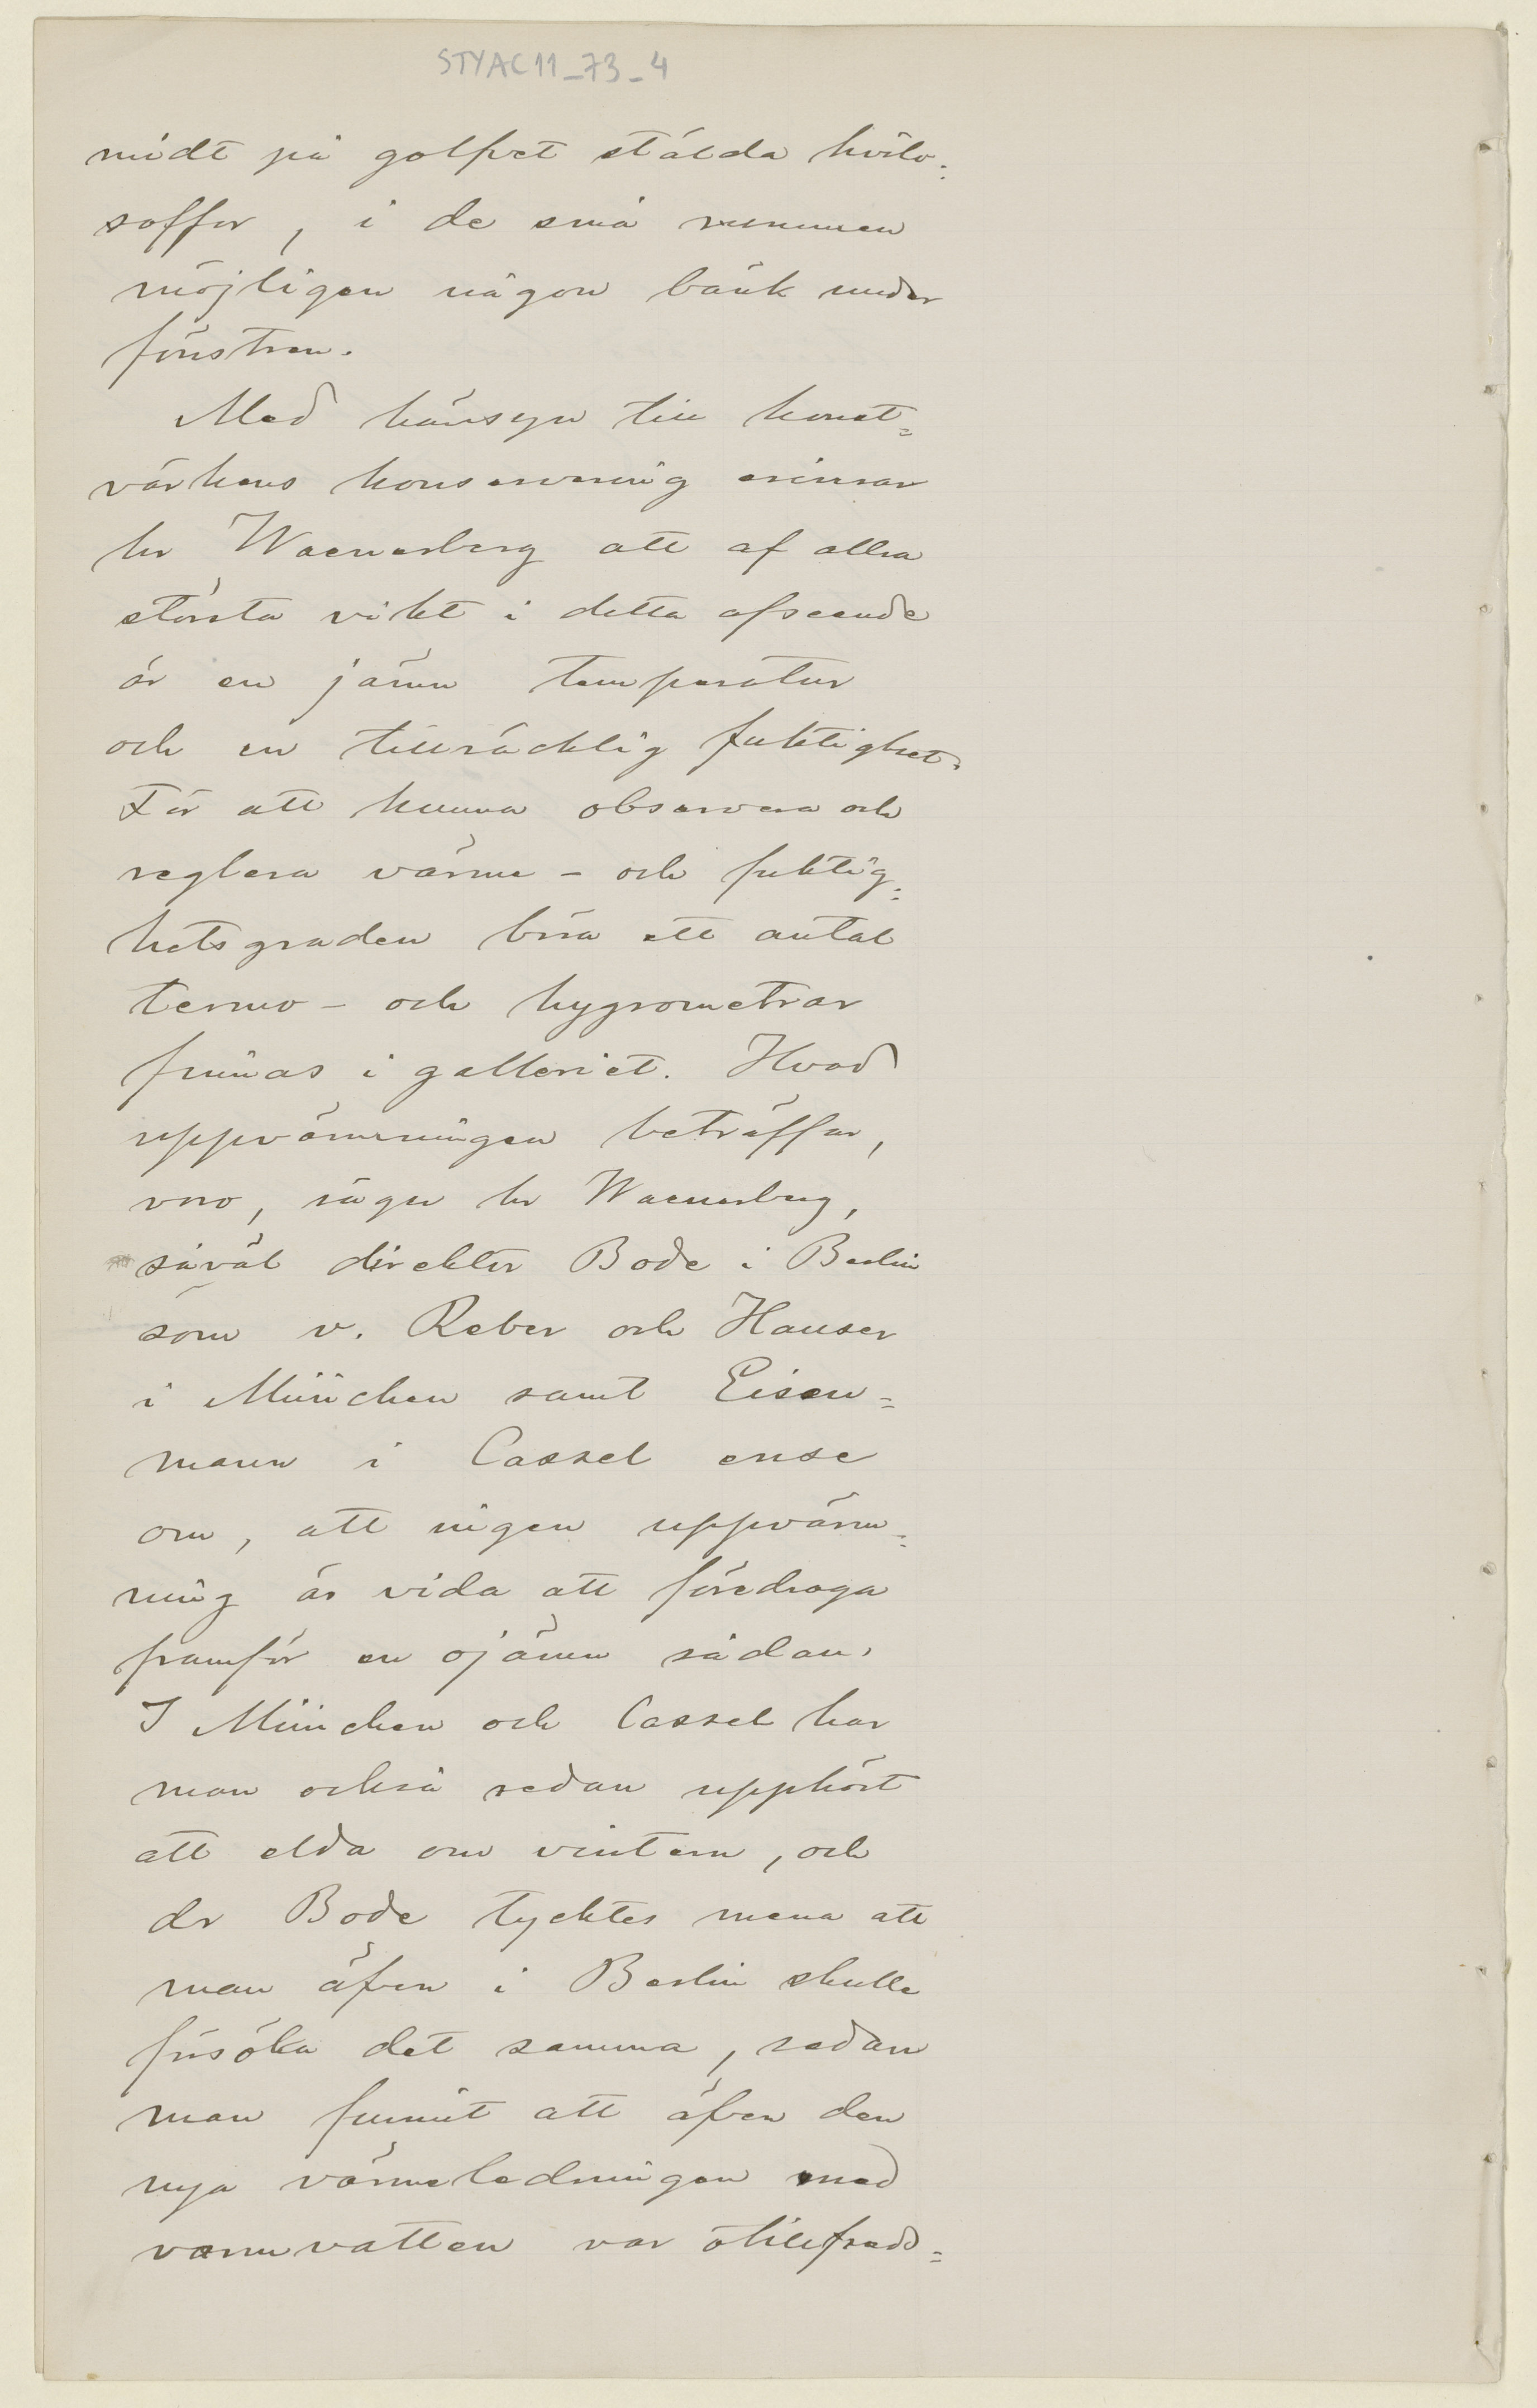 STYAC11_73_4
midt på golfvet stälda hvilo=
soffor, i de små rummen
möjligen någon bänk under
fönstren.
Med hänsyn till konst=
värkens konservering erinrar
hr Waenerberg att af allra
största vikt i detta afseende
är en jämn temperatur
och en tillräcklig fuktighet.
För att kunna observera och
reglera värme- och fuktig=
hetsgraden böra ett antal
termo- och hygrometrar
finnas i galleriet. Hvad
uppvärmningen beträffar,
voro, säger hr Waenerberg,
såväl direktör Bode i Berlin
som v. Reber och Hauser
i München samt Eisen=
mann i Cassel ense
om, att ingen uppvärm=
ning är vida att föredraga
framför en ojämn sådan.
I München och Cassel har
man också redan upphört
att elda om vintern, och
dr Bode tycktes mena att
man äfven i Berlin skulle
försöka det samma, sedan
man funnit att äfven den
nya värmeledningen med
varmvatten var otillfreds=